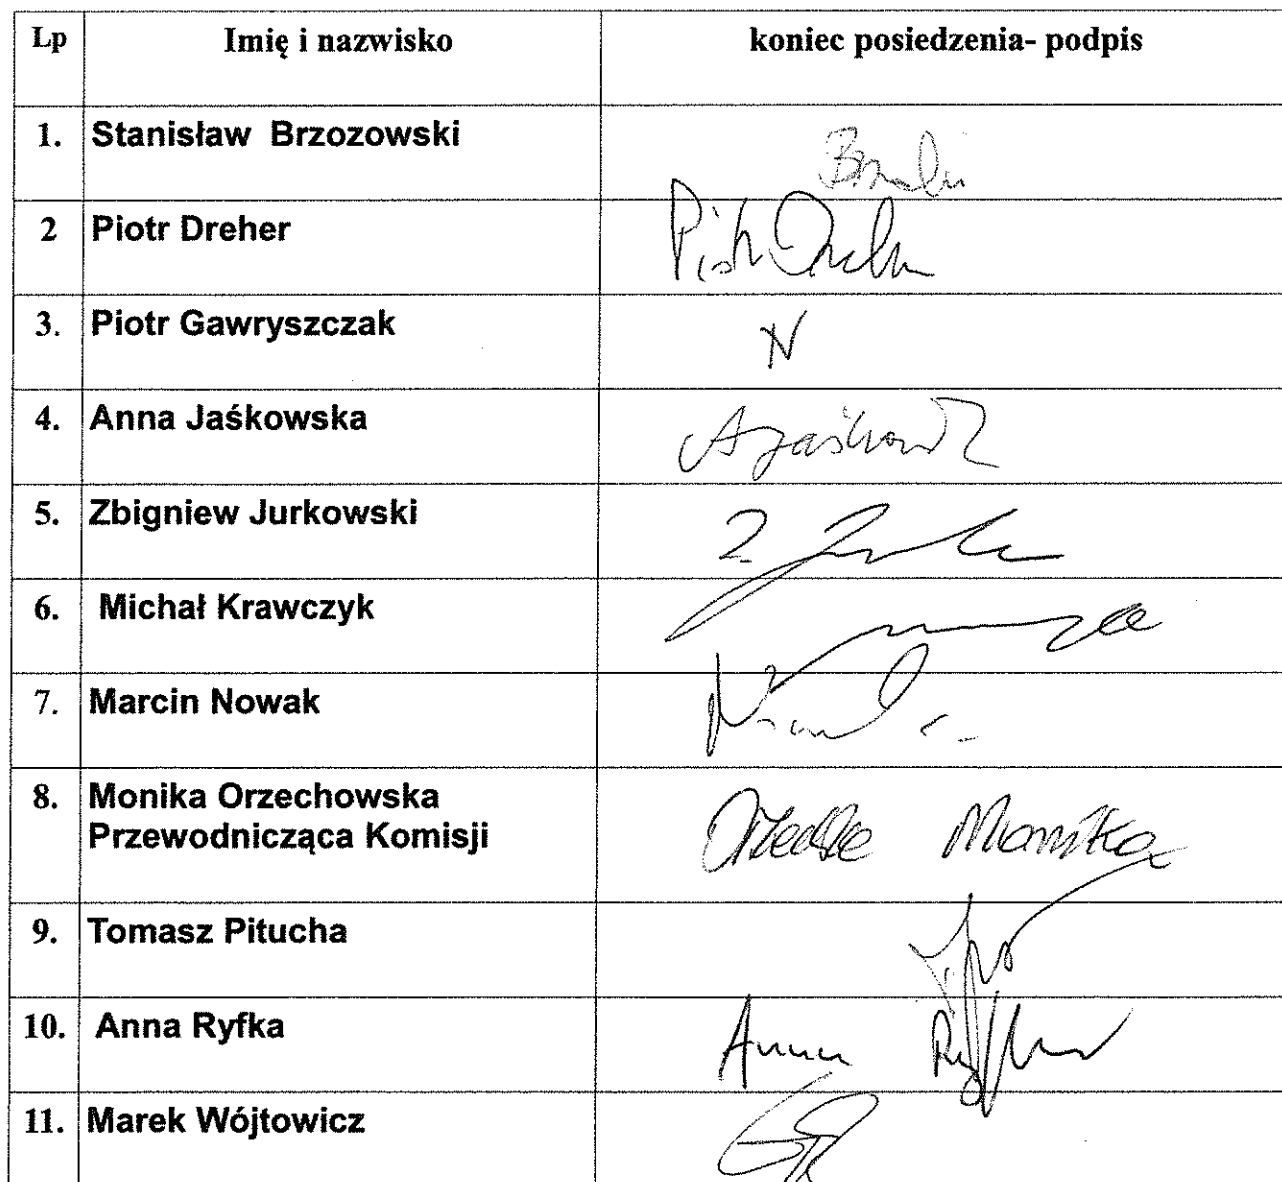 Lp Imię i nazwisko koniec posiedzenia- podpis
1. Stanisław Brzozowski
2 Piotr Dreher Piotr Dreher
3. Piotr Gawryszczak N
4. Anna Jaśkowska
5. Zbigniew Jurkowski
6. Michał Krawczyk
7. Marcin Nowak
8. Monika Orzechowska
Przewodnicząca Komisji Monika
9. Tomasz Pitucha
10. Anna Ryfka Anna Ryfka
11. Marek Wójtowicz